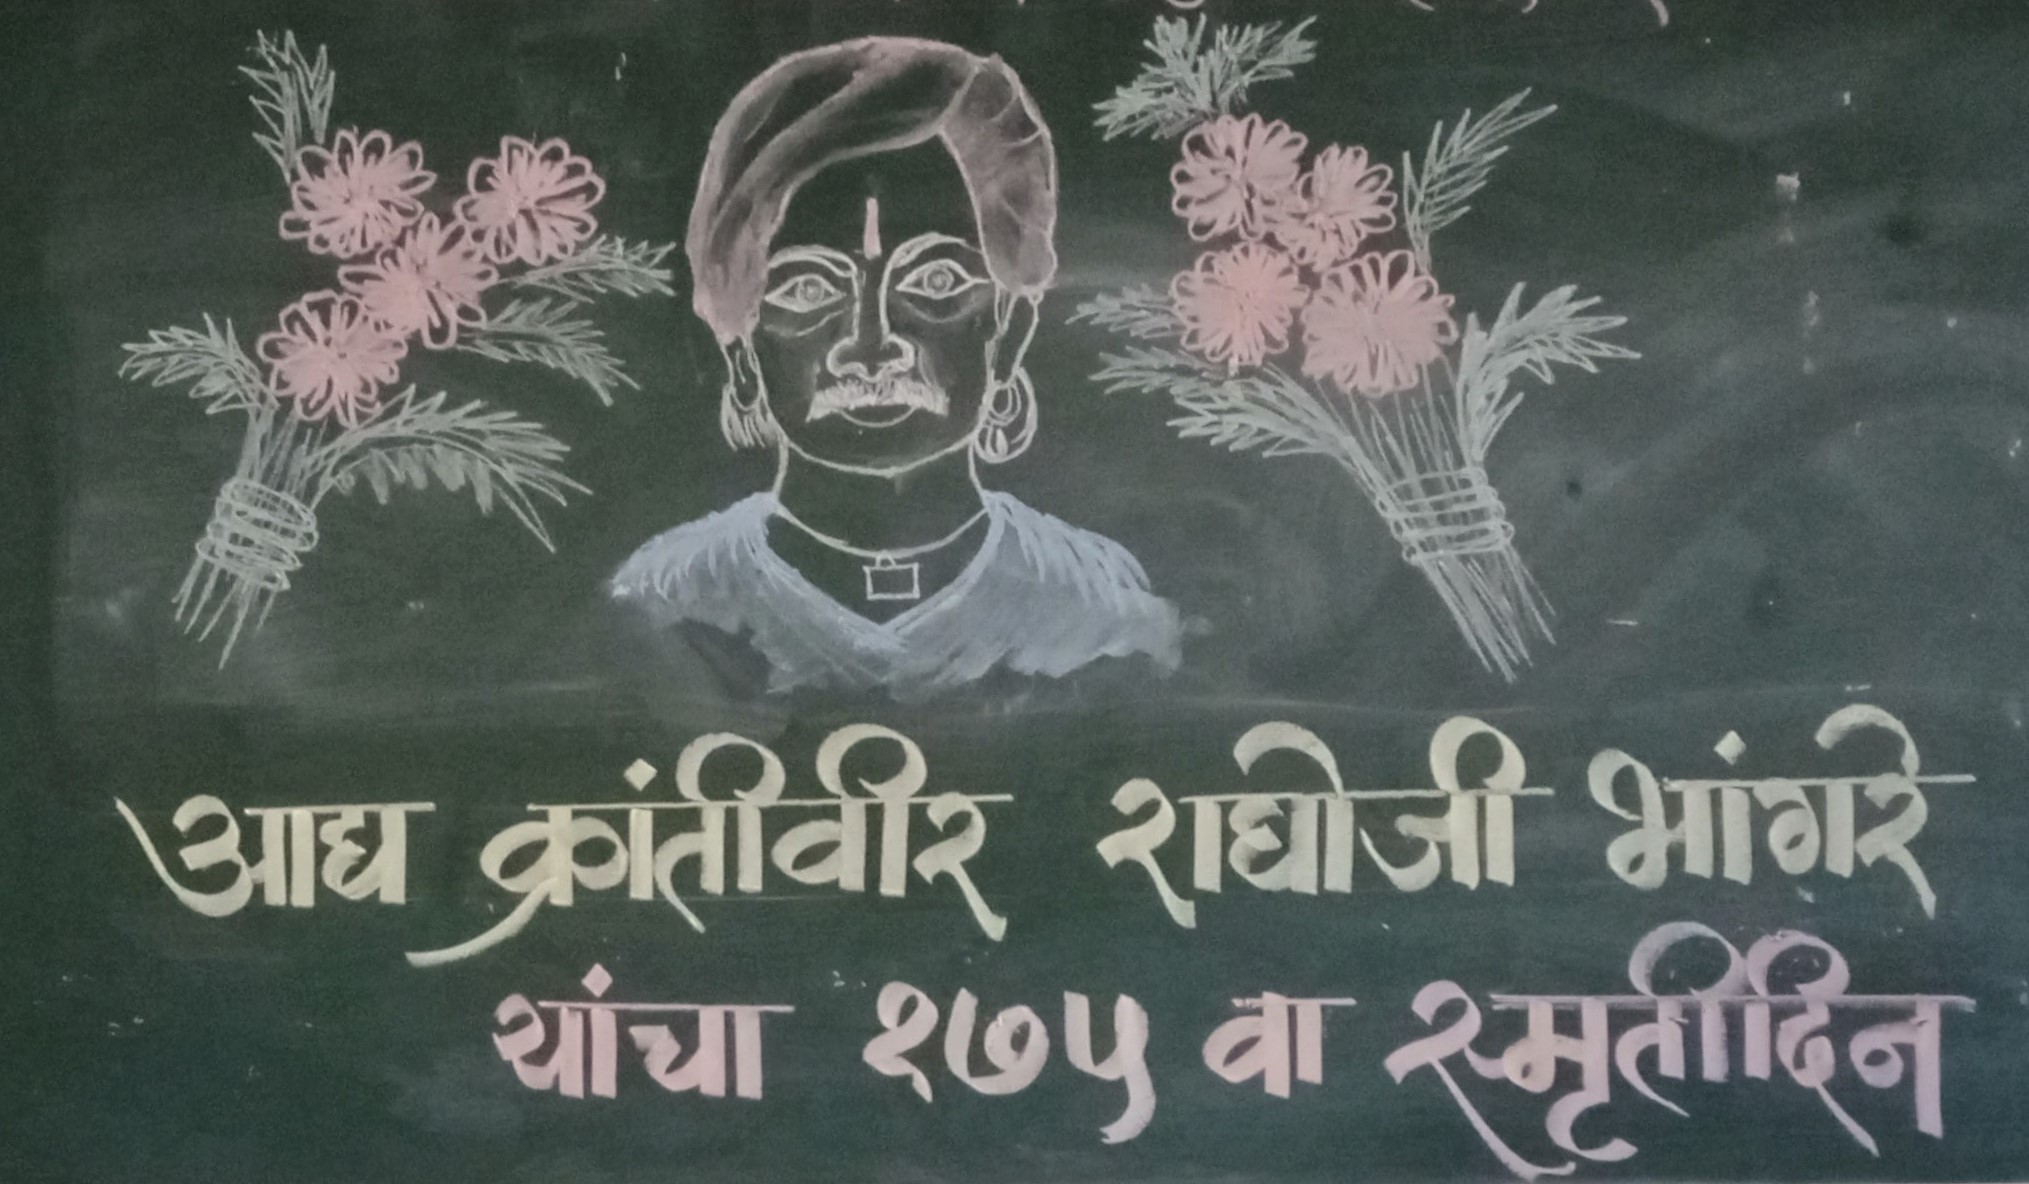 आद्य क्रांतीवीर राघोजी भांगरे
यांचा १७५ वा स्मृतीदिन